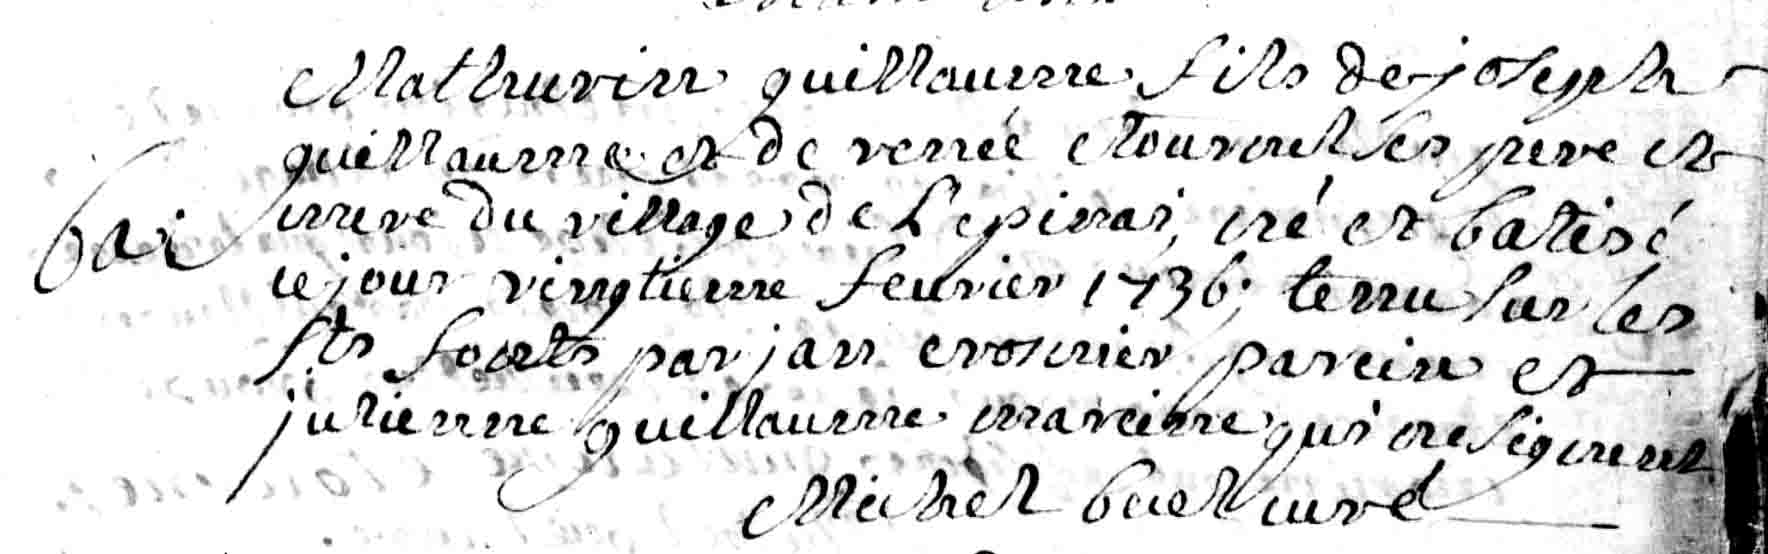 Mathurin guillaume fils de joseph
guillaume et de renée ses pere et
mere du village de L'epinai, né et batisé
ce jour vingtieme feurier 1736; tenu sur les
sts fonts par jan crosnier parein et
bat
julienne guillaume mareine qui ne signent
Michel buet curé